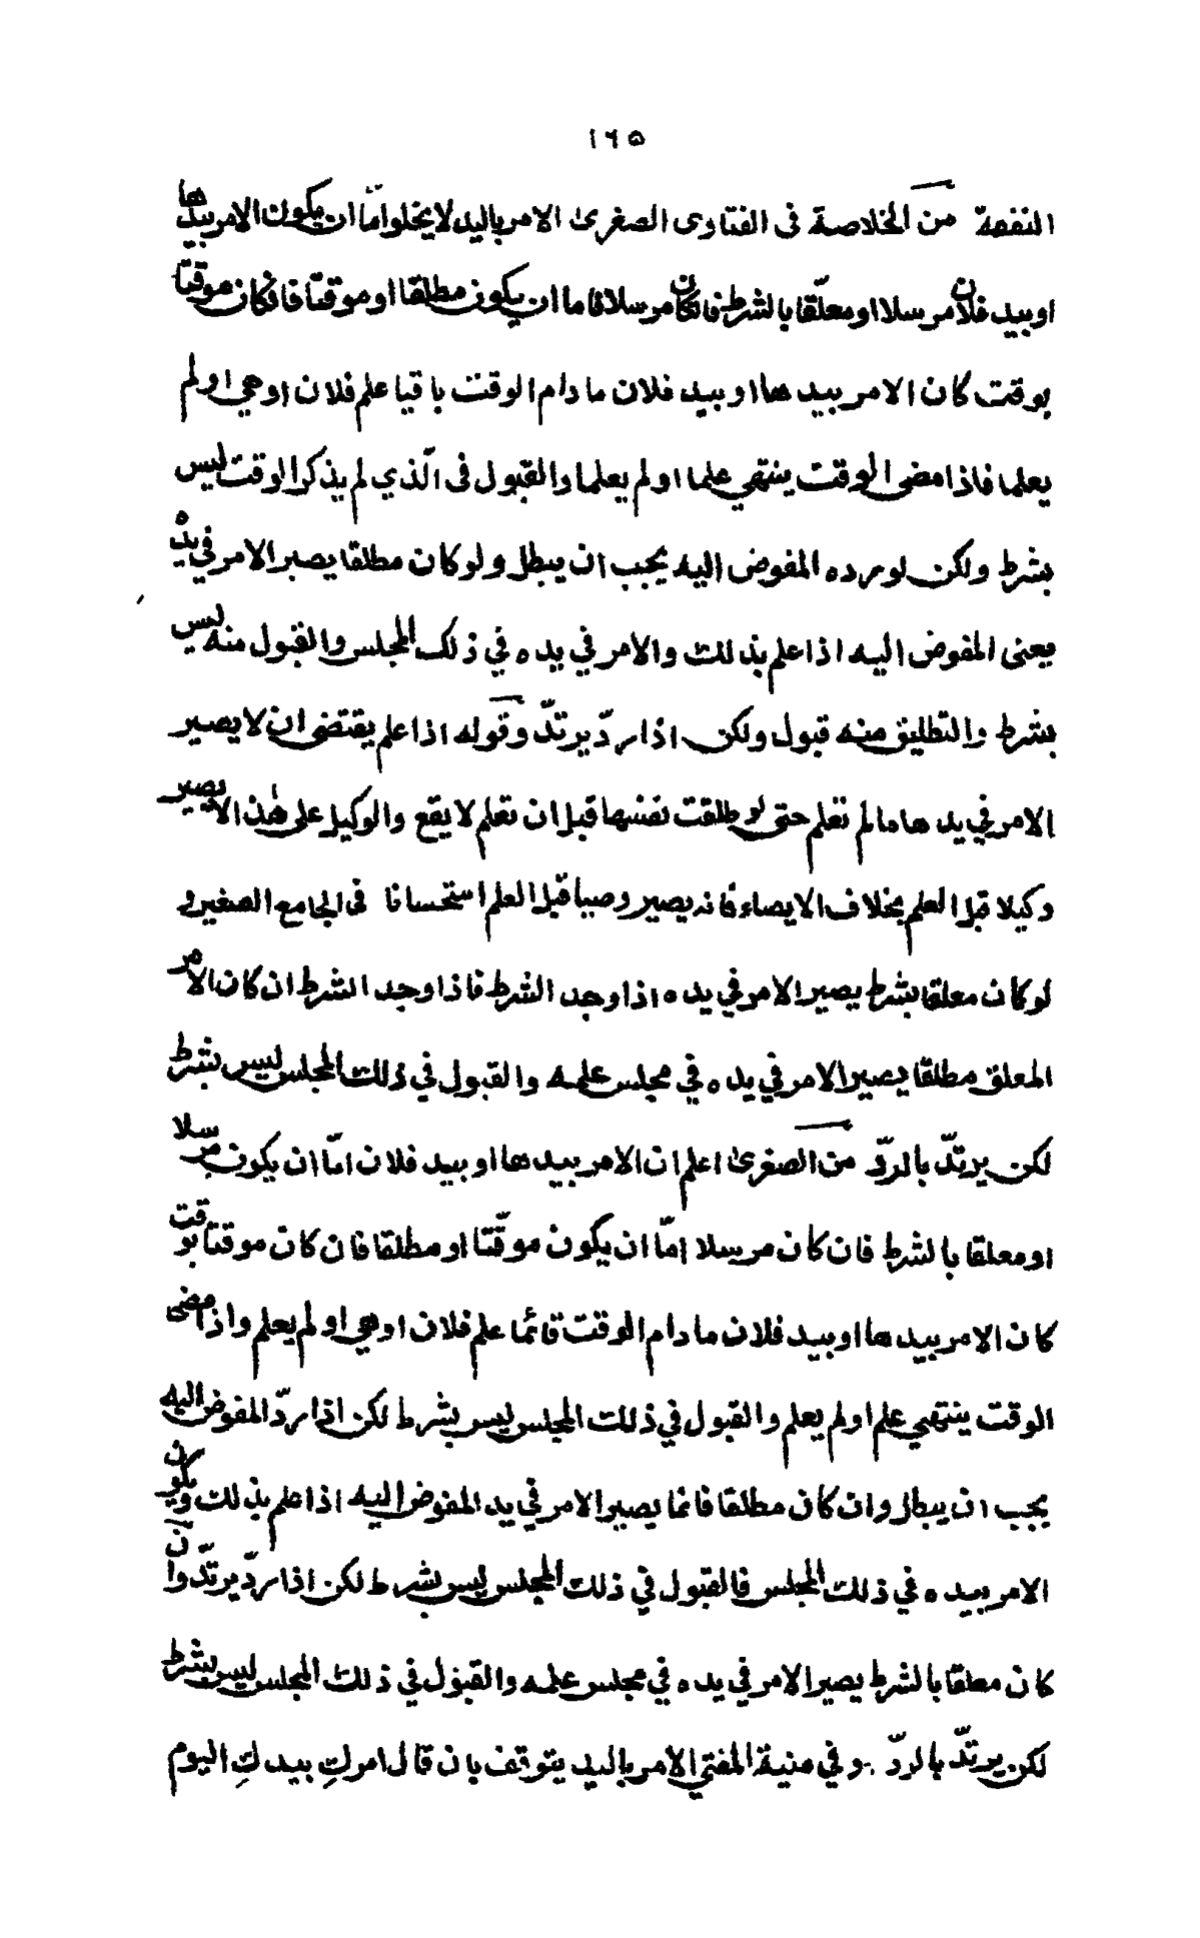 ١٦٥
النفقة من الخلاصة فى الفتاوى الصغرى الامر باليد لا يخلوا امّا ان يكون الامر بيدها
او بيد فلان مرسلا او معلّقا بالشرط فان كان مرسلا فاما ان يكون مطلقا او موقتّا فان كان موقتا
بوقت كان الامر بيدها او بيد فلان ما دام الوقت باقيا علم فلان او هي او لم
يعلما فاذا مضى الوقت ينتهي علما او لم يعلما والقبول فى الّذي لم يذكر الوقت ليس
بشرط ولكن لو رده المفوض اليه يجب ان يبطل ولو كان مطلقا يصير الامر في يده
يعنى المفوض اليه اذا علم بذلك والامر في يده في ذلك المجلس والقبول منه ليس
بشرط والتطليق منه قبول ولكن اذا ردّ يرتدّ وقوله اذا علم يقتضى ان لا يصير
الامر في يدها ما لم تعلم حتى لو طلقت نفسها قبل ان تعلم لا يقع والوكيل على هذا لا يصير
وكيلا قبل العلم بخلاف الايصاء فانه يصير وصيا قبل العلم استحسانا فى الجامع الصغير و
لو كان معلقا بشرط يصير الامر في يده اذا وجد الشرط فاذا وجد الشرط ان كان الامر
المعلق مطلقا يصير الامر في يده في مجلس علمه والقبول في ذلك المجلس ليس بشرط
لكن يرتدّ بالردّ من الصغرى اعلم ان الامر بيدها او بيد فلان امّا ان يكون مرسلا
او معلقا بالشرط فان كان مرسلا امّا ان يكون موقّتا او مطلقا فان كان موقتا بوقت
كان الامر بيدها او بيد فلان ما دام الوقت قائما علم فلان او هي او لم يعلم واذا مضى
الوقت ينتهي علم او لم يعلم والقبول في ذلك المجلس ليس بشرط لكن اذا ردّ المفوض اليه
يجب ان يبطل وان كان مطلقا فانما يصير الامر في يد المفوض اليه اذا علم بذلك ويكون
الامر بيده في ذلك المجلس فالقبول في ذلك المجلس ليس بشرط لكن اذا ردّ يرتدّ وان
كان معلقا بالشرط يصير الامر في يده في مجلس علمه والقبول في ذلك المجلس ليس بشرط
لكن يرتدّ بالردّ وفي منية المفتي الامر باليد يتوقف بان قال امركِ بيدكِ اليوم